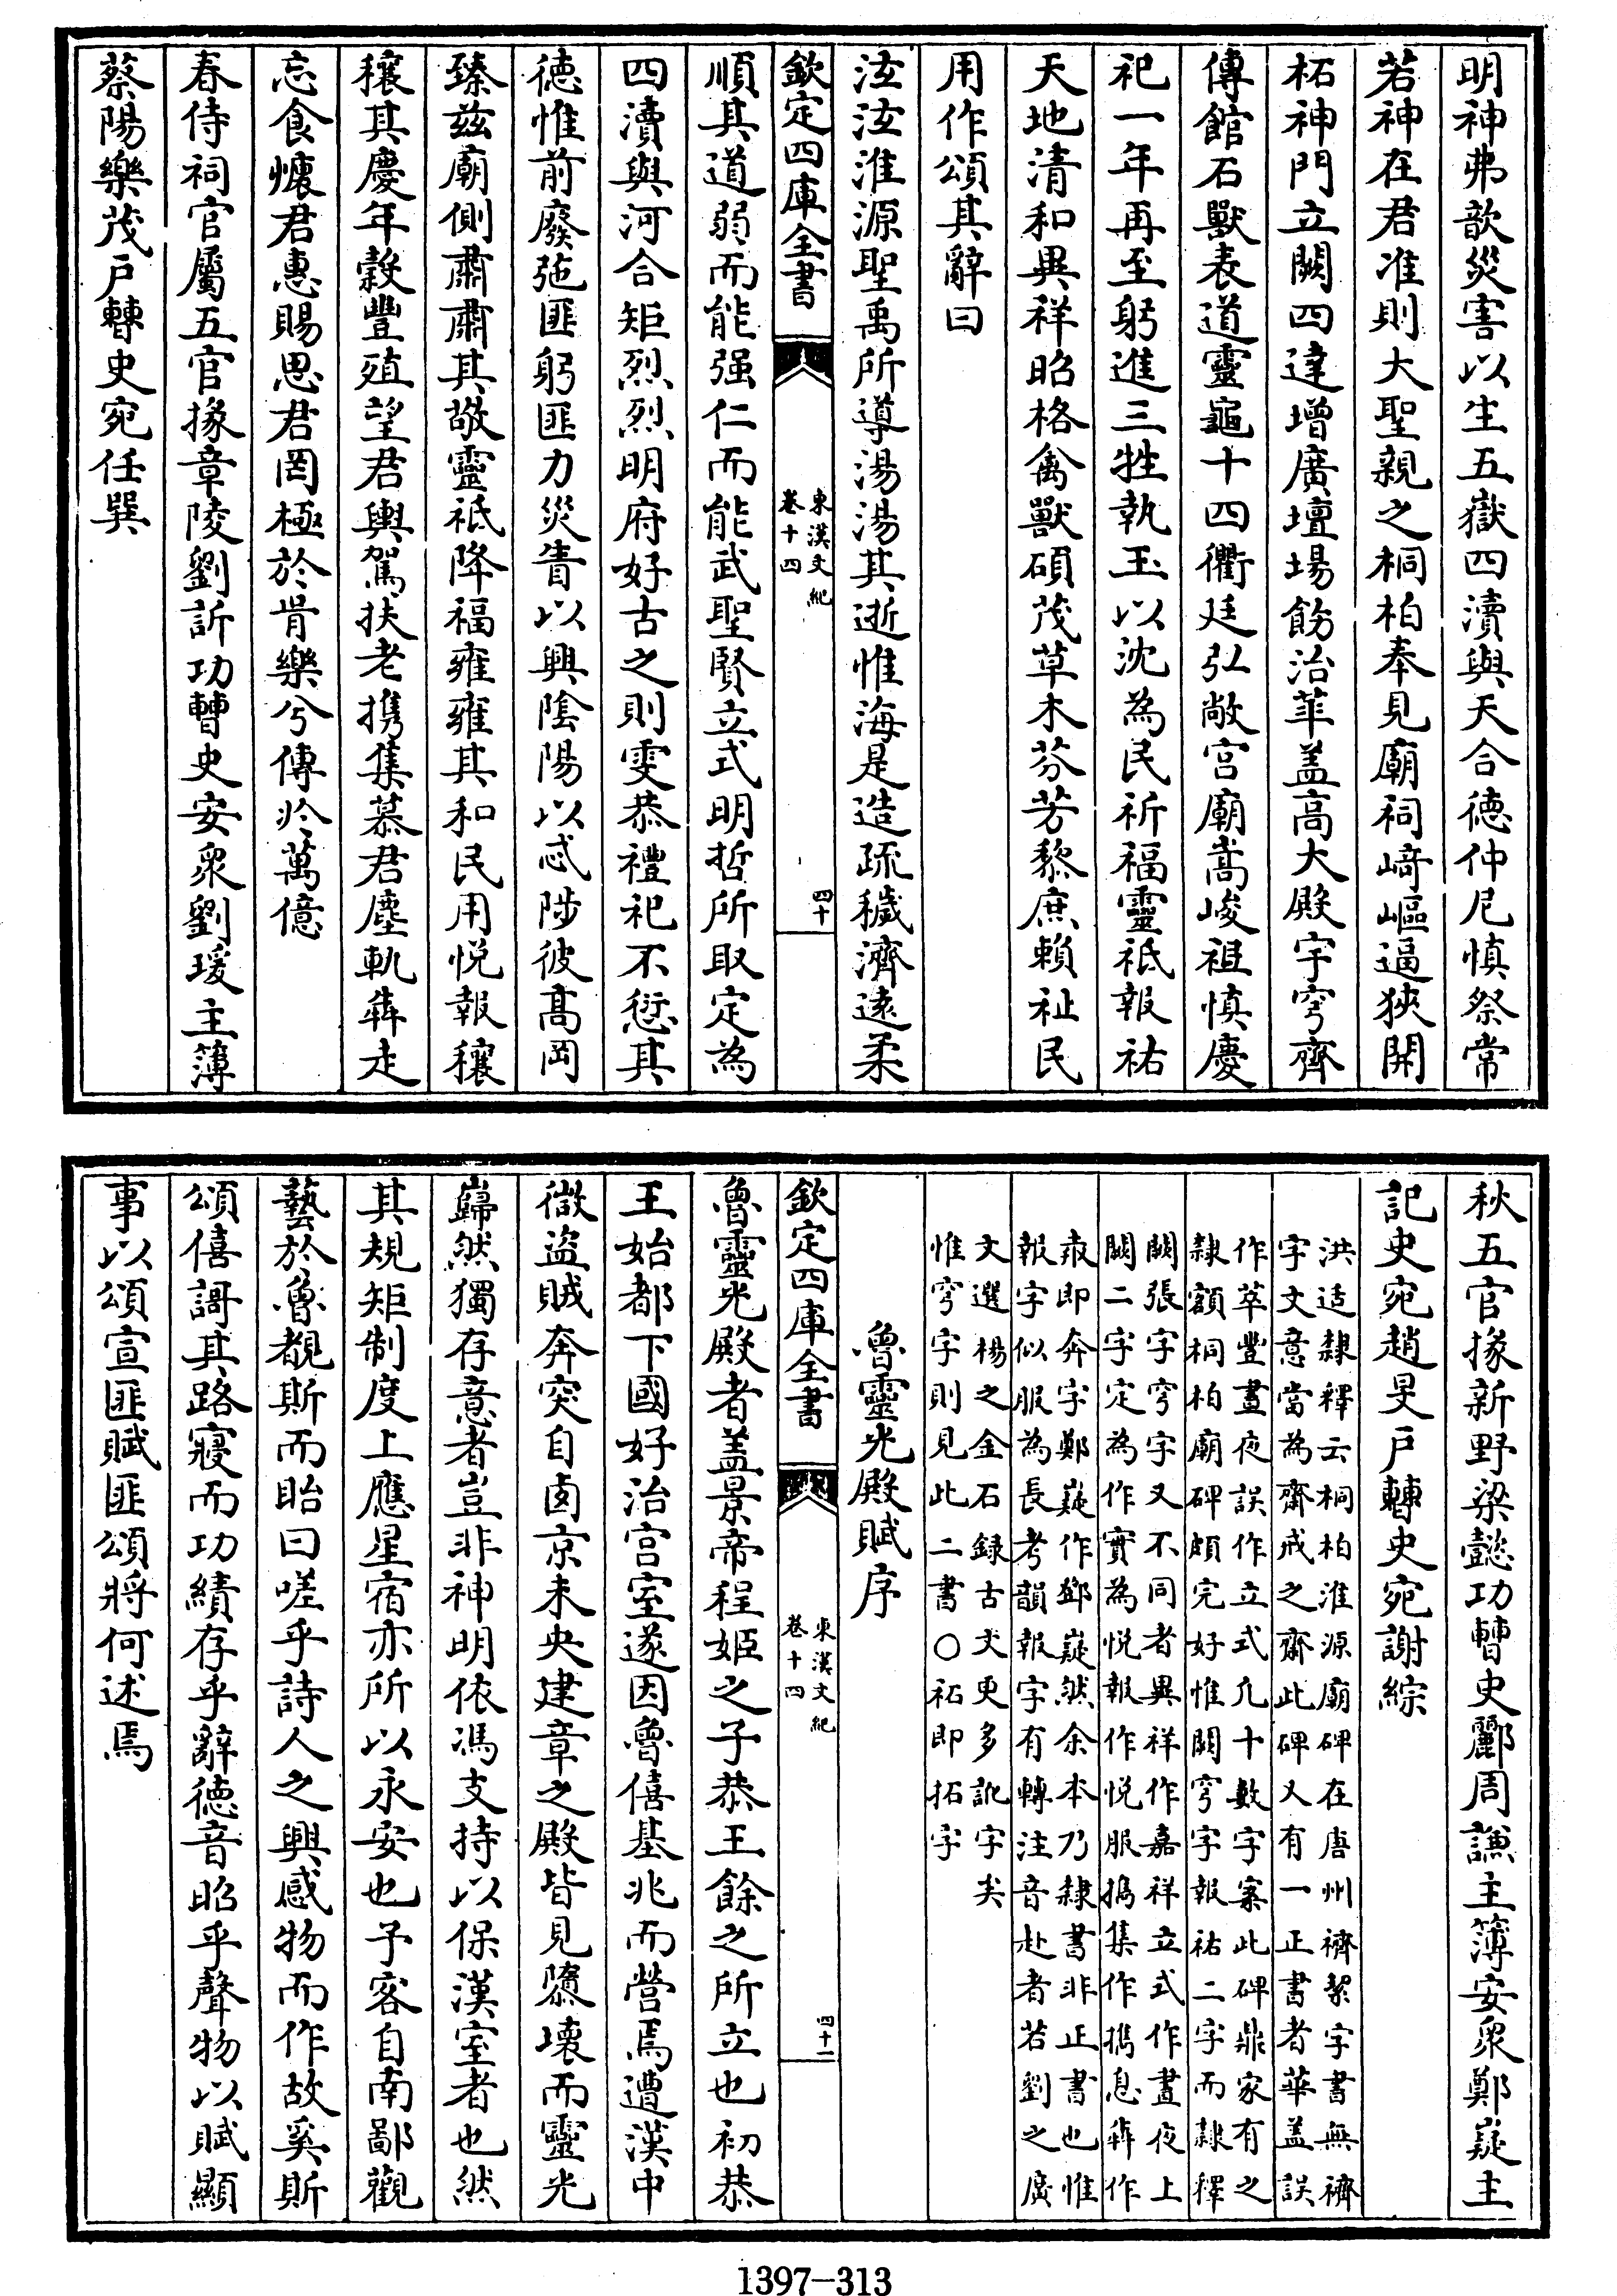 明神弗歆災害以生五嶽四瀆與天合德仲尼慎祭常
若神在君准則大聖親之桐柏奉見廟祠﨑嶇逼狹開
柘神門立闕四達增廣壇場飭治華盖高大殿宇穹齊
傳館石獸表道靈龜十四衢廷弘敞宫廟嵩峻祖慎慶
祀一年再至躬進三牲執玉以沈為民祈福靈祗報祐
天地清和異祥昭格禽獸碩茂草木芬芳黎庶賴祉民
用作頌其辭曰
泫泫淮源聖禹所導湯湯其逝惟海是造疏穢濟遠柔
欽定四庫全書
東漢文紀
卷十四
四十
順其道弱而能强仁而能武聖賢立式明哲所取定為
四瀆與河合矩烈烈明府好古之則雯恭禮祀不愆其
德惟前廢弛匪躬匪力災眚以興陰陽以忒陟彼高岡
臻兹廟側肅肅其敬靈祗降福雍雍其和民用悦報穰
穰其慶年穀豐殖望君輿駕扶老携集慕君塵軌犇走
忘食懷君惠賜思君罔極於胥樂兮傳於萬億
春侍祠官屬五官掾章陵劉訢功曹史安衆劉瑗主簿
蔡陽樂茂戸曹史宛任巽
秋五官掾新野梁懿功曹史酈周謙主簿安衆鄭嶷主
記史宛趙旻戸曹史宛謝綜
洪适隸釋云桐柏淮源廟碑在唐州穧絜字書無穧
字文意當為齋戒之齋此碑又有一正書者華盖誤
作萃豐晝夜誤作立式凢十數字案此碑鼎家有之
隸額桐柏廟碑頗完好惟闕穹字報祐二字而隸釋
闕張字穹字又不同者異祥作嘉祥立式作晝夜上
闕二字定為作實為悦報作悦服携集作擕息犇作
㚏即奔字鄭嶷作鄧嶷然余本乃隸書非正書也惟
報字似服為長考韻報字有轉注音赴者若劉之廣
文選楊之金石録古文更多訛字矣
惟穹字則見此二書○祏即拓字
魯靈光殿賦序
欽定四庫全書
東漢文紀
卷十四
四十一
魯靈光殿者盖景帝程姬之子恭王餘之所立也初恭
王始都下國好治宫室遂因魯僖基兆而營焉遭漢中
微盗賊奔突自卤京未央建章之殿皆見隳壞而靈光
巋然獨存意者豈非神明依馮支持以保漢室者也然
其規矩制度上應星宿亦所以永安也予客自南鄙觀
藝於魯覩斯而眙曰嗟乎詩人之興感物而作故奚斯
頌僖謌其路寢而功績存乎辭德音昭乎聲物以賦顯
事以頌宣匪賦匪頌將何述焉
1397-313